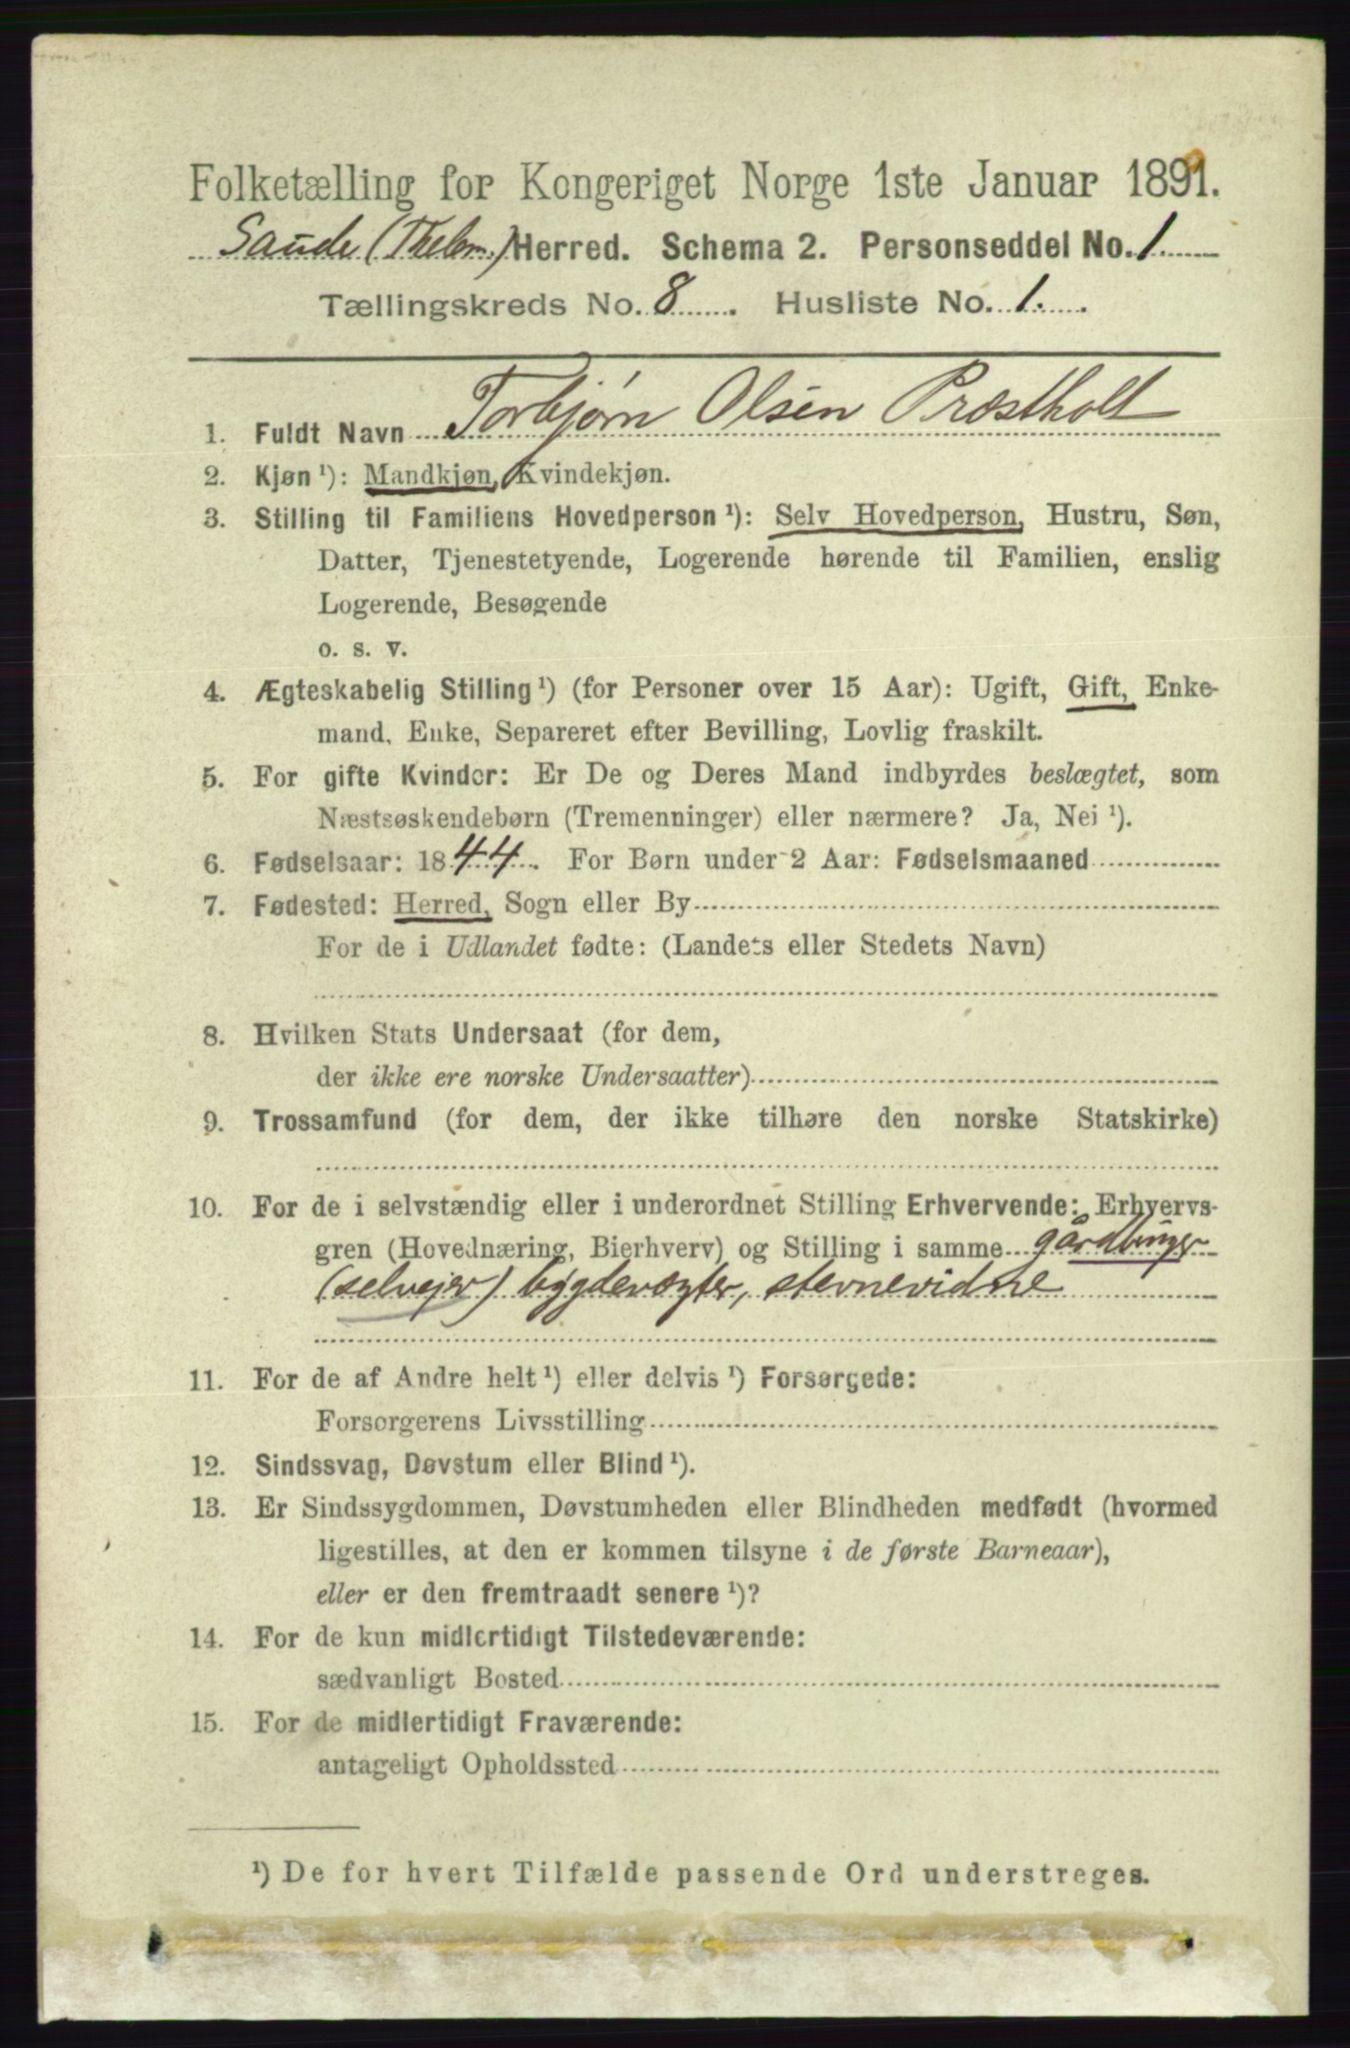 Folketælling for Kongeriget Norge 1ste Januar 1891.
Saude (Thelem.) Herred. Schema 2. Personseddel No. 1
Tællingskreds No. 8. Husliste No. 1.
1. Fuldt Navn Torbjørn Olsen Præstholt
2. Kjøn ¹): Mandkjøn, Kvindekjøn.
3. Stilling til Familiens Hovedperson ¹): Selv Hovedperson, Hustru, Søn,
Datter, Tjenestetyende, Logerende hørende til Familien, enslig
Logerende, Besøgende
o. s. v.
4. Ægteskabelig Stilling ¹) (for Personer over 15 Aar): Ugift, Gift, Enke-
mand, Enke, Separeret efter Bevilling, Lovlig fraskilt.
5. For gifte Kvinder: Er De og Deres Mand indbyrdes beslægtet, som
Næstsøskendebørn (Tremenninger) eller nærmere? Ja, Nei ¹).
6. Fødselsaar: 1844. For Børn under 2 Aar: Fødselsmaaned
7. Fødested: Herred, Sogn eller By
For de i Udlandet fødte: (Landets eller Stedets Navn)
8. Hvilken Stats Undersaat (for dem,
der ikke ere norske Undersaatter)
9. Trossamfund (for dem, der ikke tilhøre den norske Statskirke)
10. For de i selvstændig eller i underordnet Stilling Erhvervende: Erhvervs-
gren (Hovednæring, Bierhverv) og Stilling i samme gårdbruger
(selvejer) bygdevægter, stevnevidne
11. For de af Andre helt ¹) eller delvis ¹) Forsørgede:
Forsørgerens Livsstilling
12. Sindssvag, Døvstum eller Blind ¹).
13. Er Sindssygdommen, Døvstumheden eller Blindheden medfødt (hvormed
ligestilles, at den er kommen tilsyne i de første Barneaar),
eller er den fremtraadt senere ¹)?
14. For de kun midlertidigt Tilstedeværende:
sædvanligt Bosted
15. For de midlertidigt Fraværende:
antageligt Opholdssted
¹) De for hvert Tilfælde passende Ord understreges.